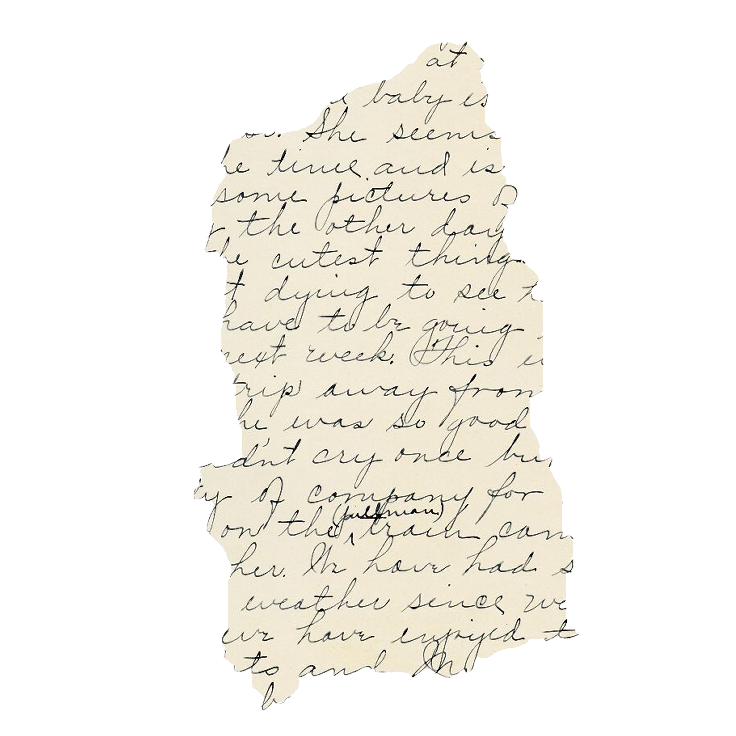 at
baby is
She seems
he time and is
some pictures of
the other day
he cutest thing.
t dying to see h
have to be going
next week. This is
trip away from
he was so good
dn't cry once but
of company for
(pullman)
on the train came
her. We have had s
weather since we
we have enjoyed t
ts and M